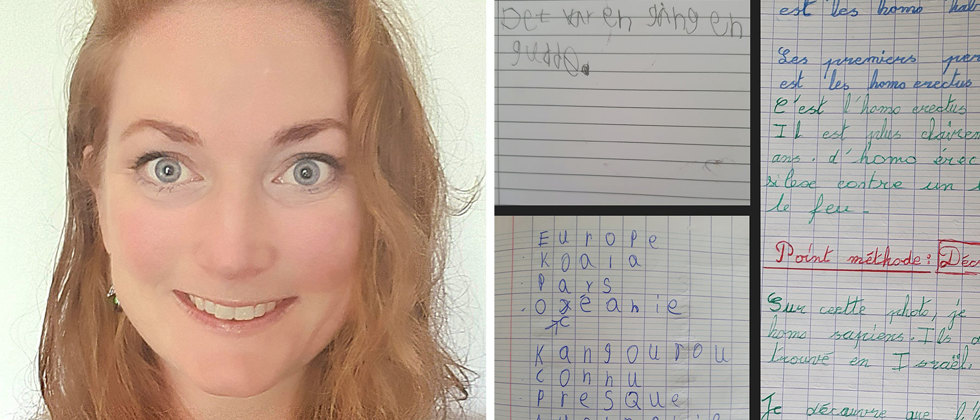 Det var en gång en
gubbe.
Europe
Koala
Pars
Oxéanie
c
Kangourou
Connu
Presque
est les homo hab
Les premiers per
est les homo erectus
C'est l'homo erectus
Il est plus claire
ans. d'homo érec
silex contre un
le feu.
Point méthode: Déc
Sur cette photo, je
homo sapiens. Ils
trouvé en Israël
Je découvre que